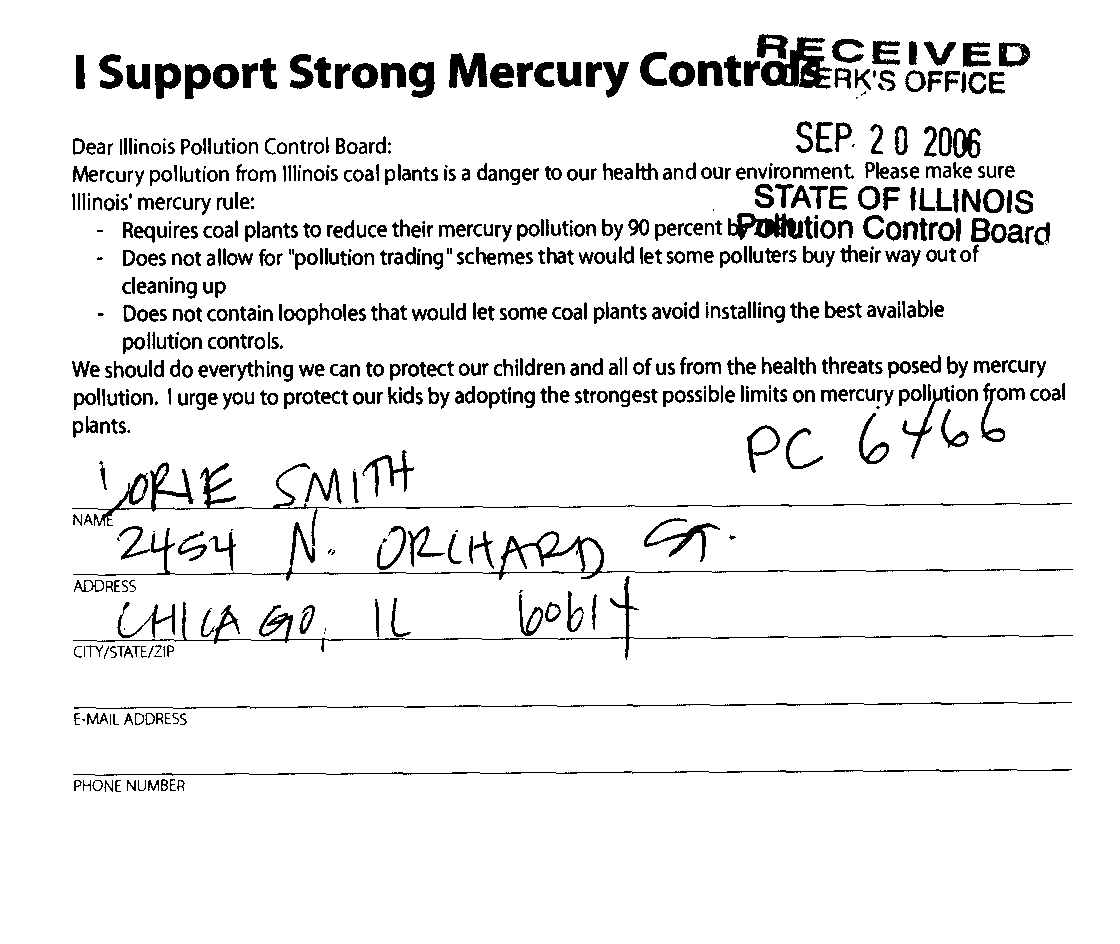 I Support Strong Mercury Controls
RECEIVED
CLERK'S OFFICE
SEP 20 2006
STATE OF ILLINOIS
Pollution Control Board
Dear Illinois Pollution Control Board:
Mercury pollution from Illinois coal plants is a danger to our health and our environment. Please make sure
Illinois' mercury rule:
- Requires coal plants to reduce their mercury pollution by 90 percent
- Does not allow for "pollution trading" schemes that would let some polluters buy their way out of
cleaning up
- Does not contain loopholes that would let some coal plants avoid installing the best available
pollution controls.
We should do everything we can to protect our children and all of us from the health threats posed by mercury
pollution. I urge you to protect our kids by adopting the strongest possible limits on mercury pollution from coal
plants.
PC 6466
LORIE SMITH
NAME
2454 N. ORCHARD ST.
ADDRESS
CHICAGO, IL 60614
CITY/STATE/ZIP
E-MAIL ADDRESS
PHONE NUMBER